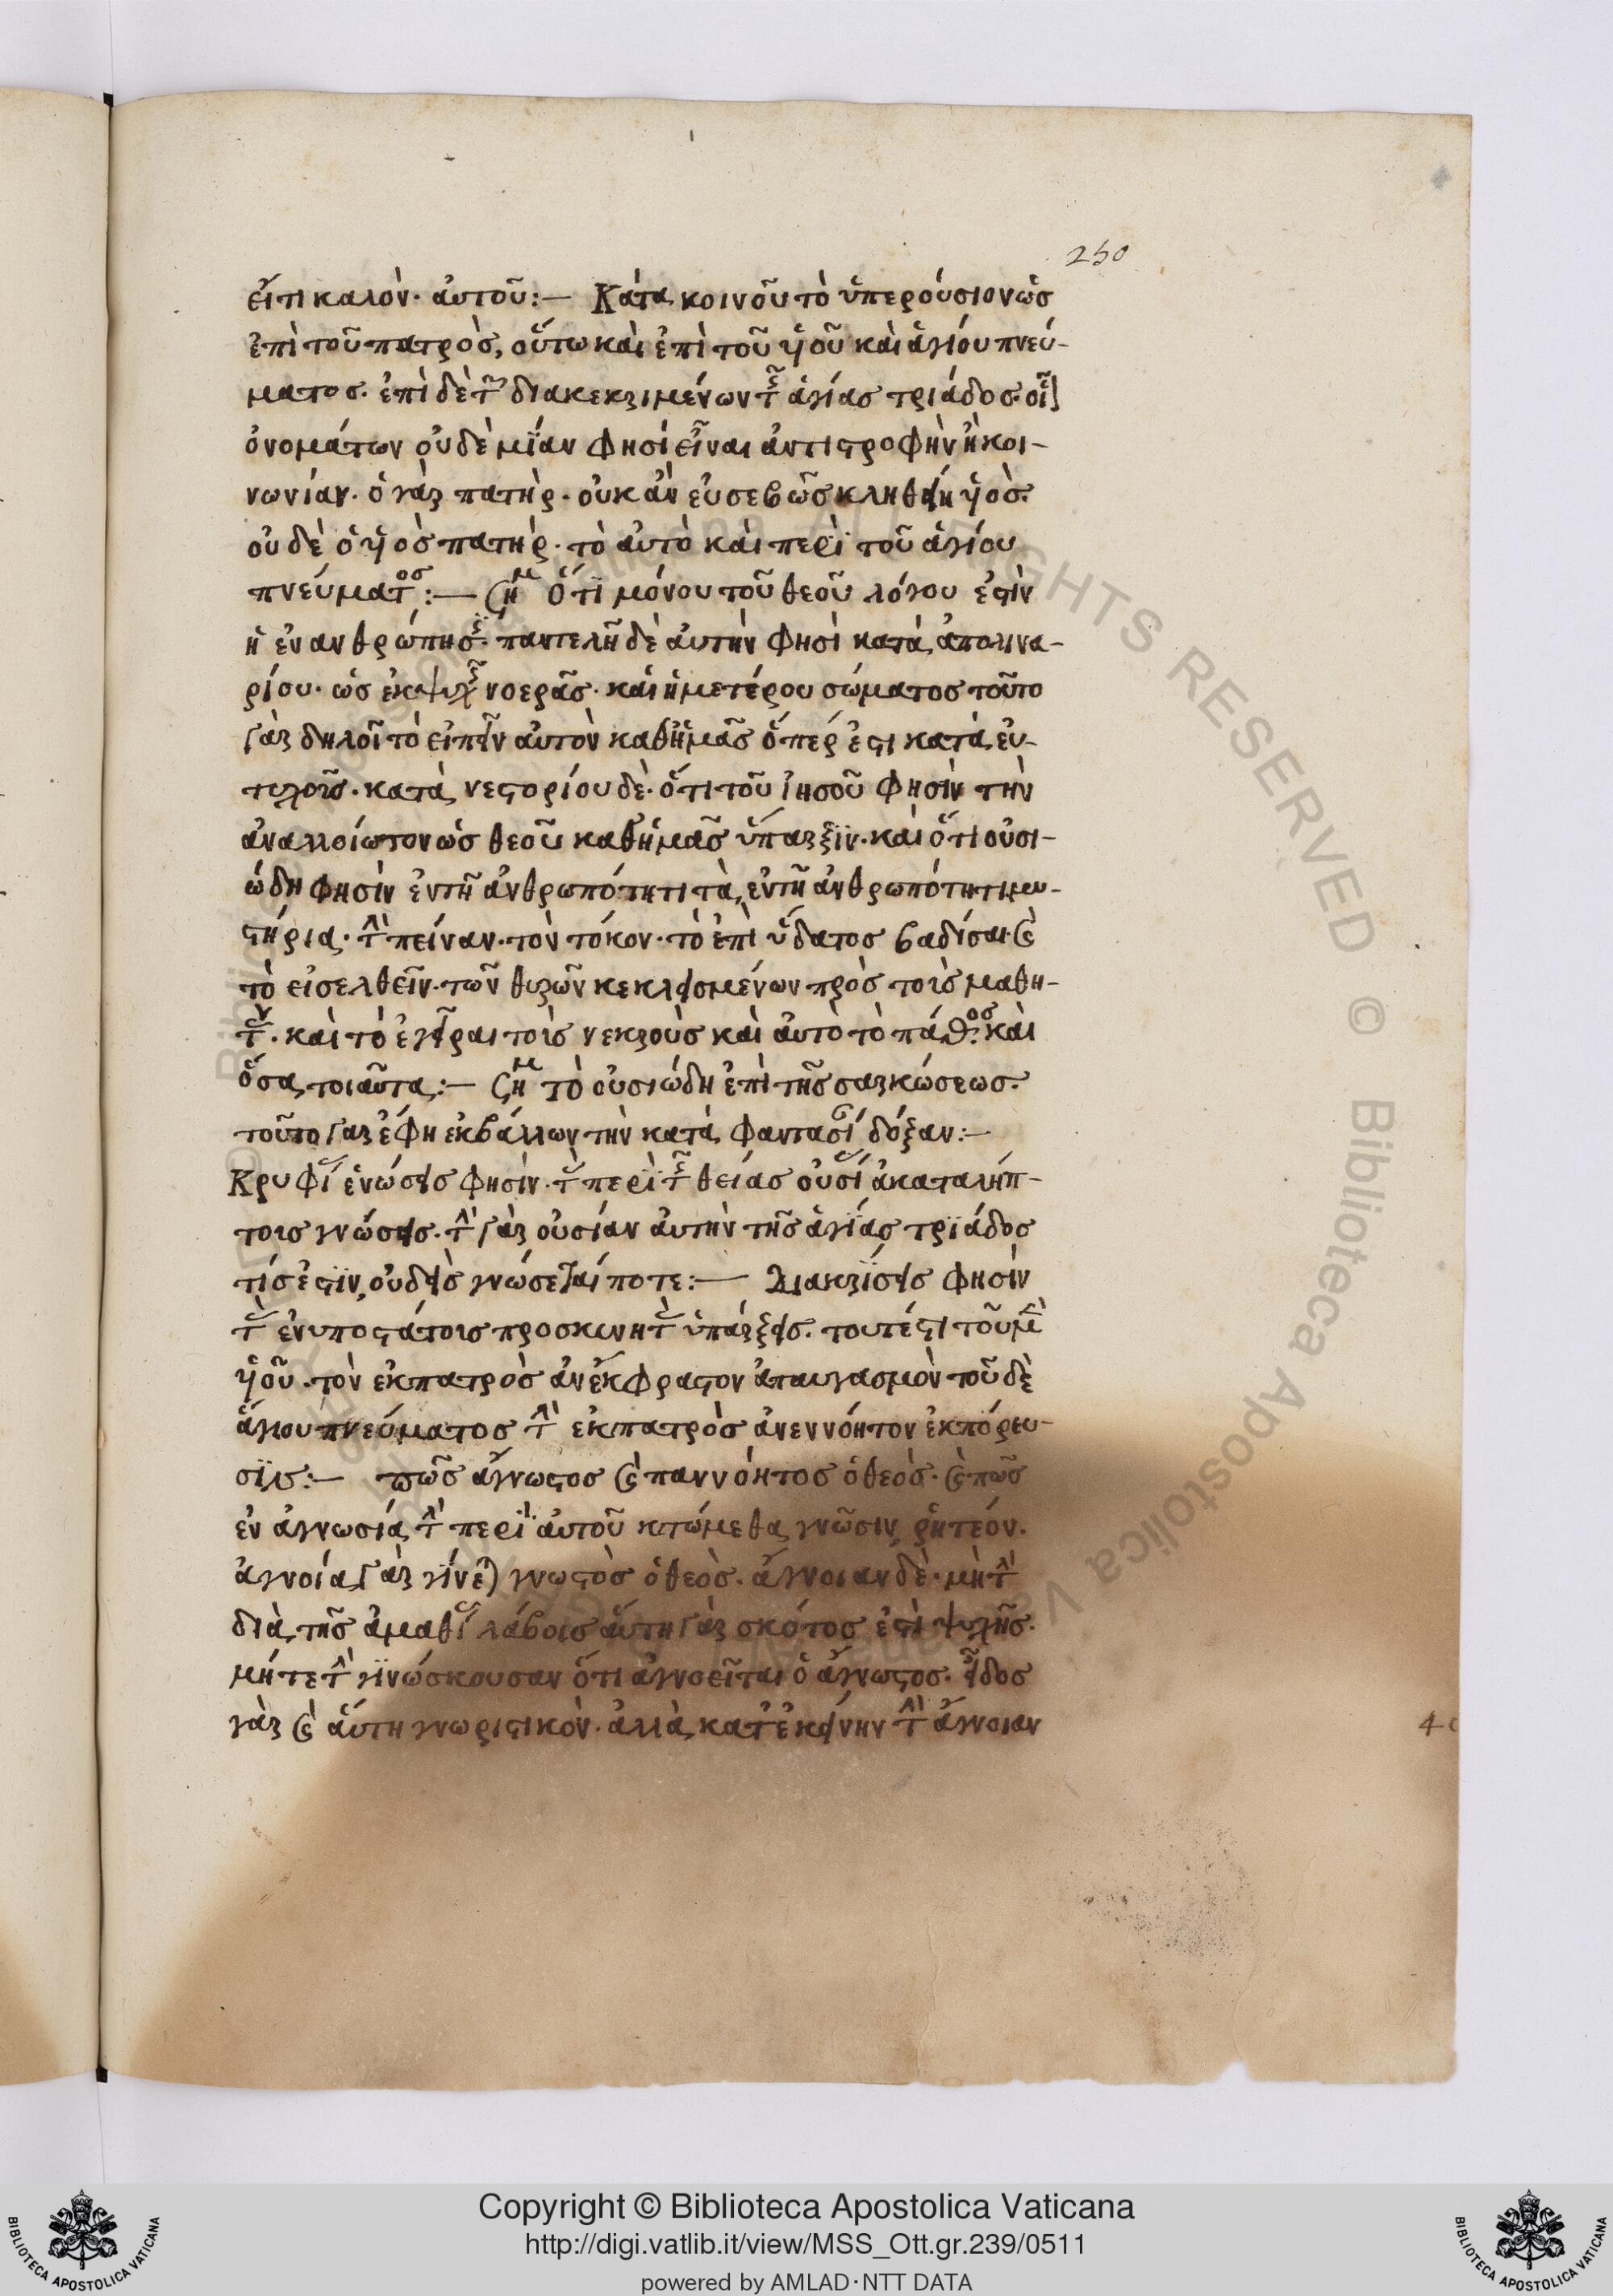 250
εἴ τι καλὸν· αὐτοῦ:— Κατὰ κοινοῦ τὸ ὑπερούσιον ὡς
ἐπὶ τοῦ πατρὸς, οὕτω καὶ ἐπὶ τοῦ ὑιοῦ καὶ ἁγίου πνεύ-
ματος. ἐπὶ δὲ τῶν διακεκριμένων τῆς ἁγίας τριάδος.
ὀνομάτων οὐδὲ μΐαν φησὶ εἶναι ἀντιστροφὴν ἢ κοι-
νωνίαν· ὁ γὰρ πατὴρ· οὐκ ἂν εὐσεβῶς κληθείη ὑιὸς·
οὐδὲ ὁ ὑιὸς πατὴρ· τὸ αὐτὸ καὶ περὶ τοῦ ἁγίου
πνεύματος:— Σημ ὅτι μόνου τοῦ θεοῦ λόγου ἐστὶν
ἡ ἐνανθρώπησις· παντελῆ δὲ αὐτὴν φησὶ κατὰ ἀπολινα-
ρίου· ὡς ἐκ ψυχῆς νοερᾶς· καὶ ἡμετέρου σώματος τοῦτο
γὰρ δηλοῖ τὸ εἰπεῖν αὐτὸν καθ' ἡμᾶς ὅπερ ἐστι κατὰ εὐ-
τυχοῦς· κατὰ νεστορίου δὲ· ὅτι τοῦ ἰησοῦ φησὶν τὴν
ἀναλλοίωτον ὡς θεοῦ καθ' ἡμᾶς ὕπαρξϊν· καὶ ὅτι οὐσι-
ώδη φησὶν ἐν τῇ ἀνθρωπότητι τὰ ἐν τῇ ἀνθρωπότητι μυ-
στήρια· τὴν πείναν· τὸν τόκον· τὸ ἐπὶ ὕδατος βαδίσαι καὶ
τὸ εἰσελθεῖν· τῶν θυρῶν κεκλεισμένων πρὸς τοὺς μαθη-
τὰς· καὶ τὸ ἐγεῖραι τοὺς νεκροὺς καὶ αὐτὸ τὸ πάθος· καὶ
ὅσα τοιαῦτα:— Σημ τὸ οὐσιώδη ἐπὶ τῆς σαρκώσεως·
τοῦτο γὰρ ἔφη ἐκβάλλων τὴν κατὰ φαντασίαν δόξαν:—
Κρυφίας ἑνώσεις φησὶν· τὰς περὶ τῆς θείας οὐσίας ἀκαταλήπ-
τοις γνώσεις· τὴν γὰρ οὐσίαν αὐτὴν τῆς ἁγίας τρϊάδος
τίς ἐστϊν, οὐδεὶς γνώσεταί ποτε:— Διακρίσεις φησὶν
τὰς ἐνυποστάτοις προσκυνητὰς ὑπάρξεις· τουτέστι τοῦ μὲν
ὑιοῦ· τὸν ἐκ πατρὸς ἀνέκφραστον ἀπαυγασμὸν τοῦ δὲ
ἁγίου πνεύματος τὴν ἐκ πατρὸς ἀνεννόητον ἐκπόρευ-
σϊν:— πῶς ἄγνωστος καὶ παννόητος ὁ θεὸς· καὶ πῶς
ἐν ἀγνωσία τὴν περὶ αὐτοῦ κτώμεθα γνῶσιν ῥητέον·
ἀγνοία γὰρ γίνεται γνωστὸς ὁ θεὸς· ἄγνοιαν δὲ· μὴ τὴν
διὰ τῆς ἀμαθίας λάβοις αὕτη γὰρ σκότος ἐστὶ ψυχῆς·
μήτε τὴν γϊνώσκουσαν ὅτι ἀγνοεῖται ὁ ἄγνωστος· εἶδος
γὰρ καὶ αὕτη γνωριστικὸν· ἀλλὰ κατ' ἐκείνην τὴν ἄγνοιαν
Copyright © Biblioteca Apostolica Vaticana
http://digi.vatlib.it/view/MSS_Ott.gr.239/0511
powered by AMLAD·NTT DATA